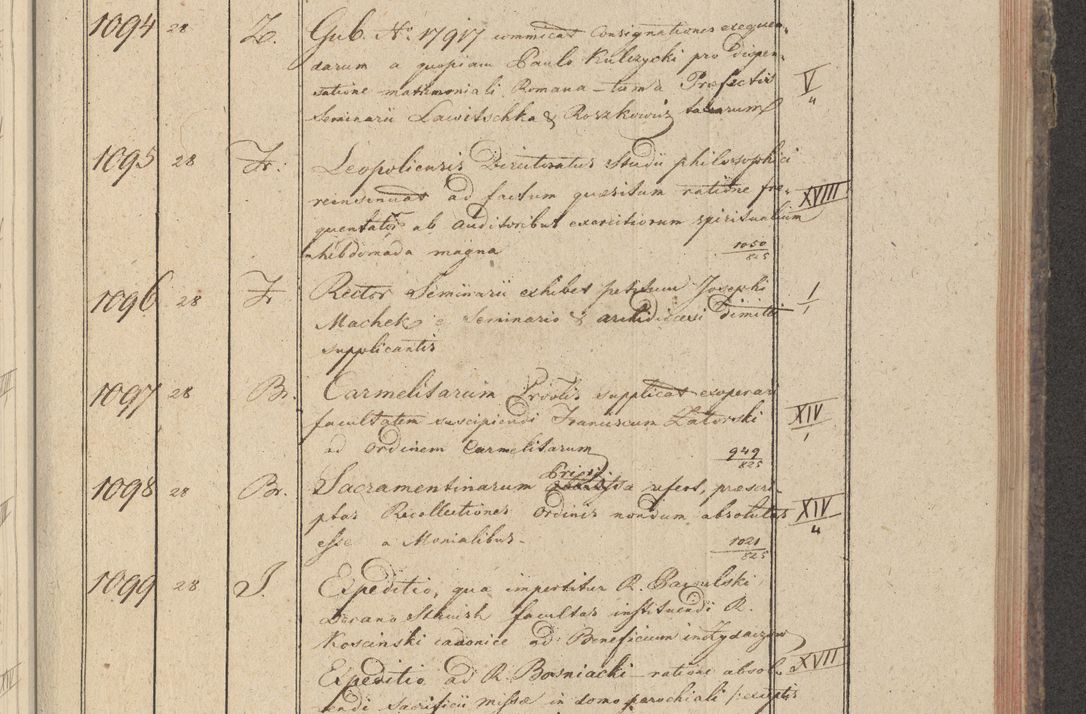 1094 28 Z. Gub. No. 17917 communicat consignationes exequen-
darum a quopiam Paulo Kulczycki pro dispen-
satione matrimoniali Romana – tum a Prefectis V
4
Seminarii Lawitschka & Roszkowicz taxarum
1095 28 Fr. Leopoliensis Directoratus Studii philosophici
reinsinuat ad factum quæsitum ratione fre- XVIII
quentatis ab auditoribus exercitiorum spiritualium
in hebdomada magna 1050
825
1096 28 Fr Rector Seminarii exhibet petitum Josephi 1
1
Machek e Seminario & archidiœcesi dimitti
supplicantis
1097 28 Br. Carmelitarum Provlis supplicat exoperari
facultatem suscipiendi Franciscum Zatorski XIV
1
ad ordinem Carmelitarum 949
825
1098 28 Br. Sacramentinarum refert, præscri-
ptas Recollectiones ordinis nondum absolutas XIV
4
esse a Monialibus. 1021
825
1099 28 J. Expeditio, qua impertitur R. Pawulski
Decano facultas instituendi R.
Koscinski canonice ad Beneficium in Zydaczow
Expeditio ad R. Bosniacki ratione absol- XVII
endi sacrificii missæ in domo parochiali /:exceptis